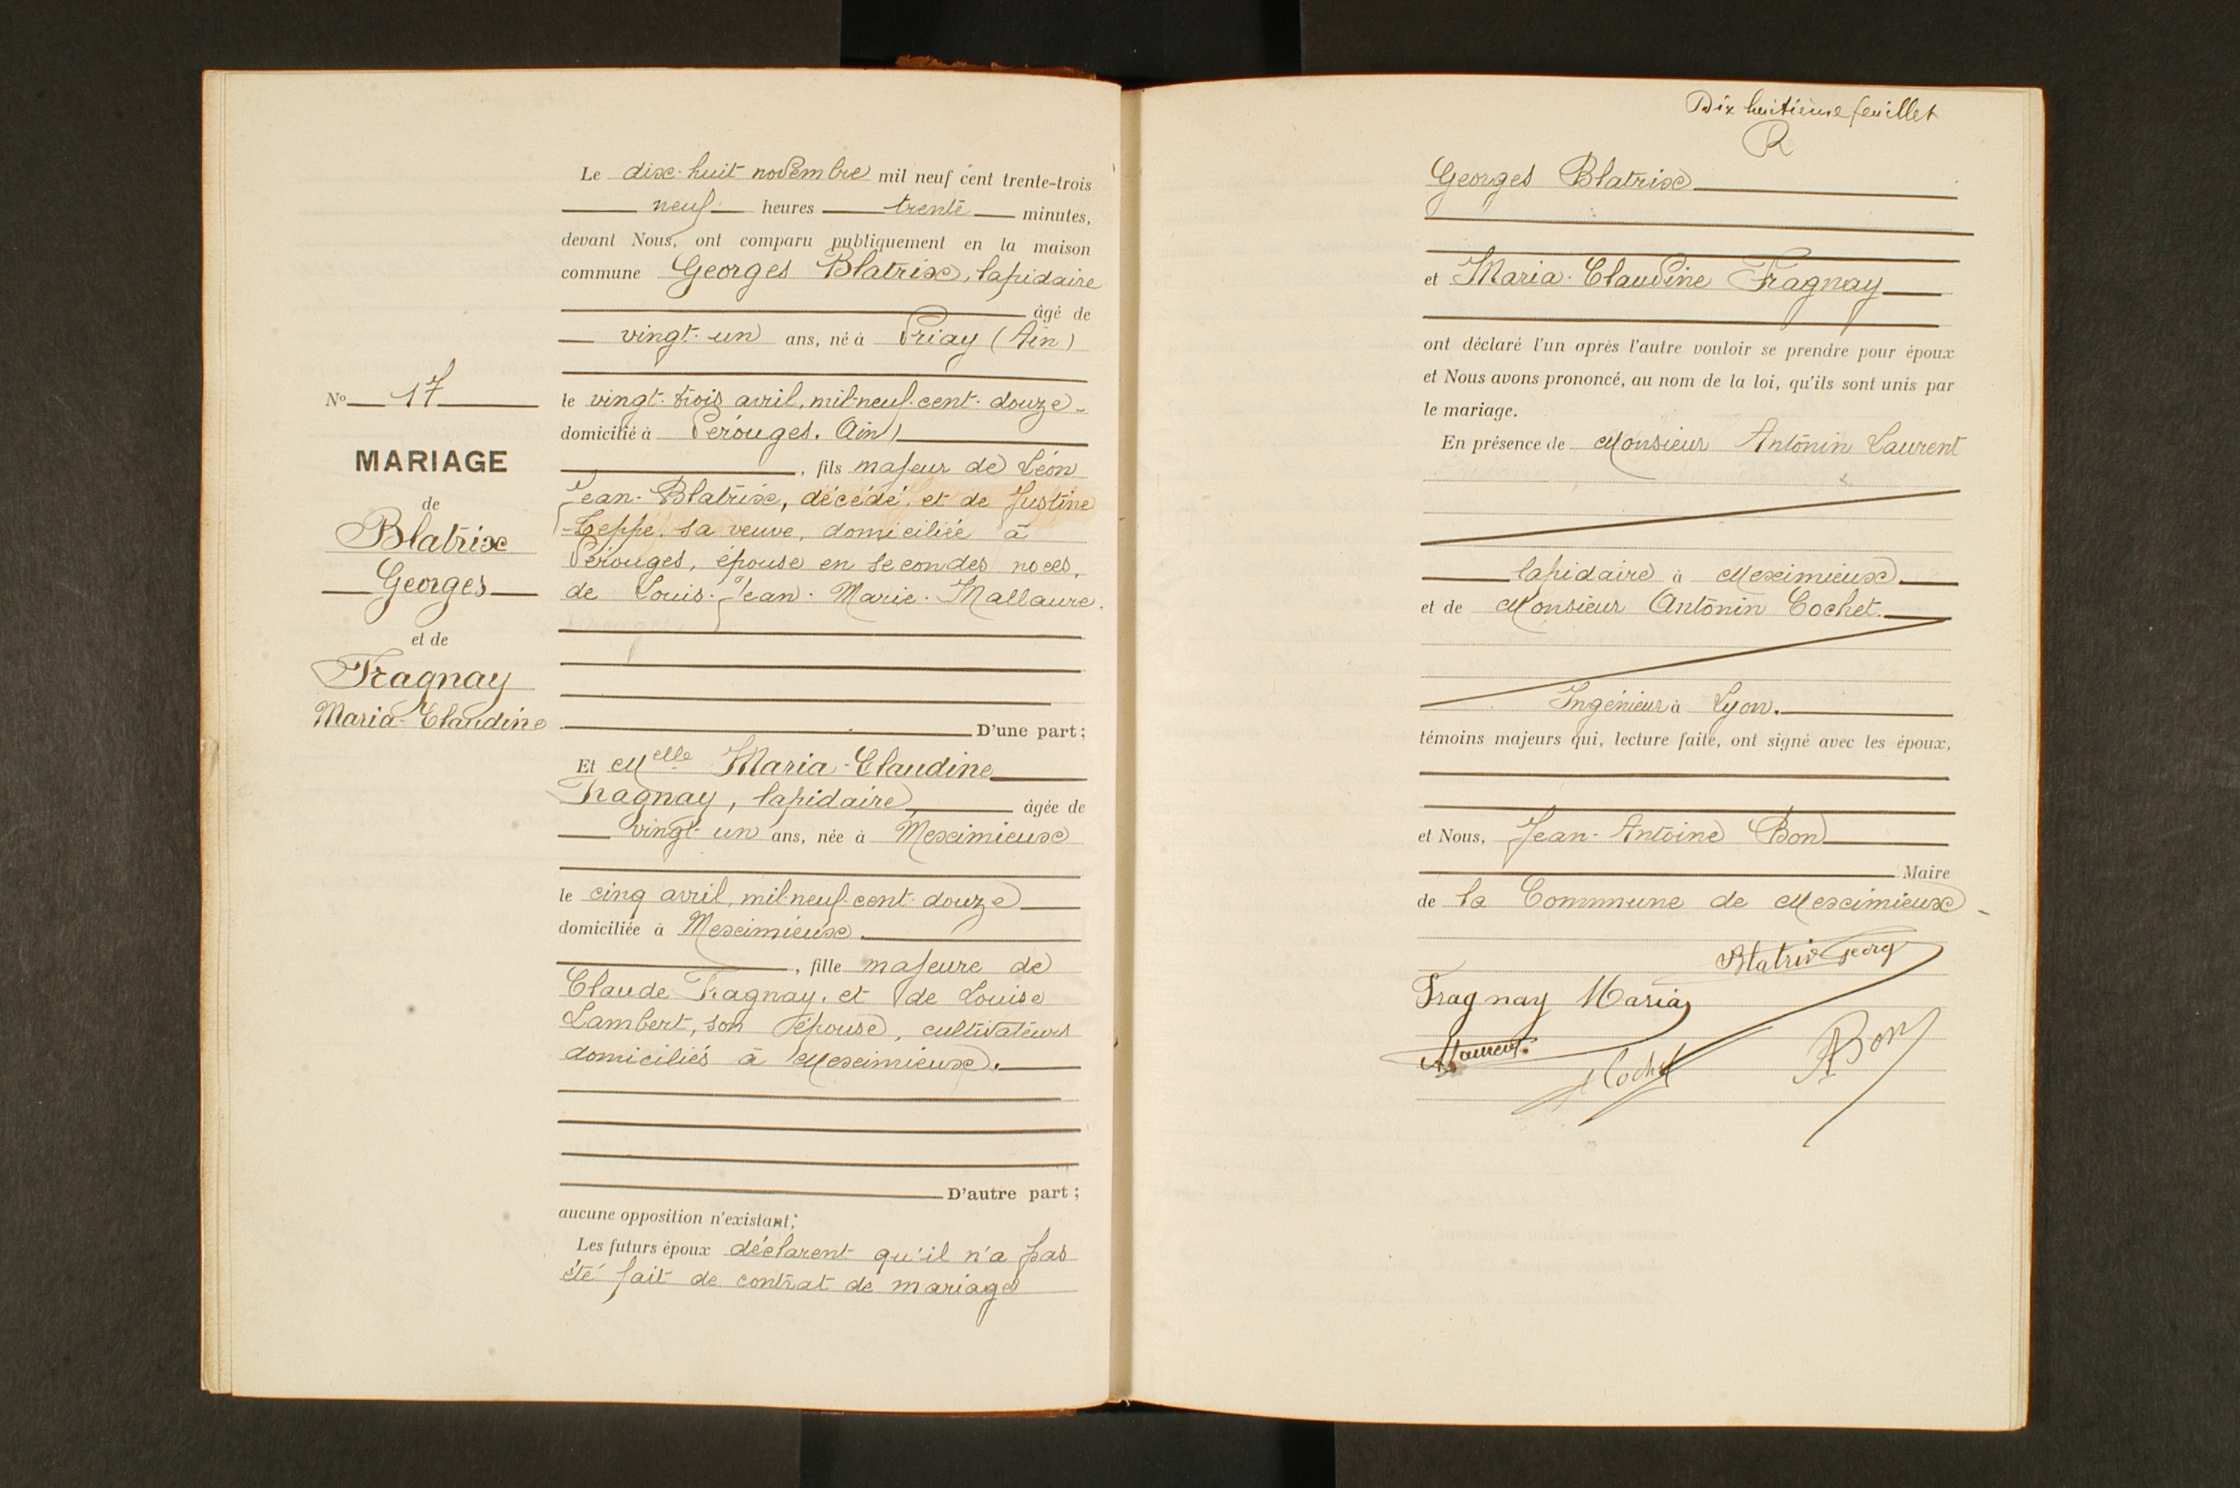 Le dix-huit novembre mil neuf cent trente-trois
neuf heures trente minutes,
devant Nous, ont comparu publiquement en la maison
commune Georges Blatrix, lapidaire
âgé de
vingt-un ans, né à Priay (Ain)
le vingt-trois avril, mil-neuf-cent-douze-
domicilié à Pérouges. Ain)
, fils majeur de Léon
Jean-Blatrix, décédé, et de Justine
-Teppe, sa veuve, domiciliée à
Pérouges, épouse en secondes noces,
de Louis-Jean-Marie-Mallaure.
D'une part;
No 17
MARIAGE
de
Blatrix
Georges
et de
Fragnay
Maria-Claudine
Et Melle Maria-Claudine
Fragnay, lapidaire âgée de
vingt-un ans, née à Meximieux
le cinq avril, mil-neuf-cent-douze
domiciliée à Meximieux.
, fille majeure de
Claude Fragnay, et de Louise
Lambert, son épouse, cultivateurs
domiciliés à Meximieux.
D'autre part;
aucune opposition n'existant;
Les futurs époux déclarent qu'il n'a pas
été fait de contrat de mariage
Dix huitième feuillet
R
Georges Blatrix
et Maria-Claudine Fragnay
ont déclaré l'un après l'autre vouloir se prendre pour époux
et Nous avons prononcé, au nom de la loi, qu'ils sont unis par
le mariage.
En présence de Monsieur Antonin Laurent
lapidaire à Meximieux
et de Monsieur Antonin Cochet.
Ingénieur à Lyon.
témoins majeurs qui, lecture faite, ont signé avec les époux,
et Nous, Jean-Antoine Bon
Maire
de la Commune de Meximieux-
Blatrix Georg
Fragnay Maria
ALaurent
Cochet
ABon